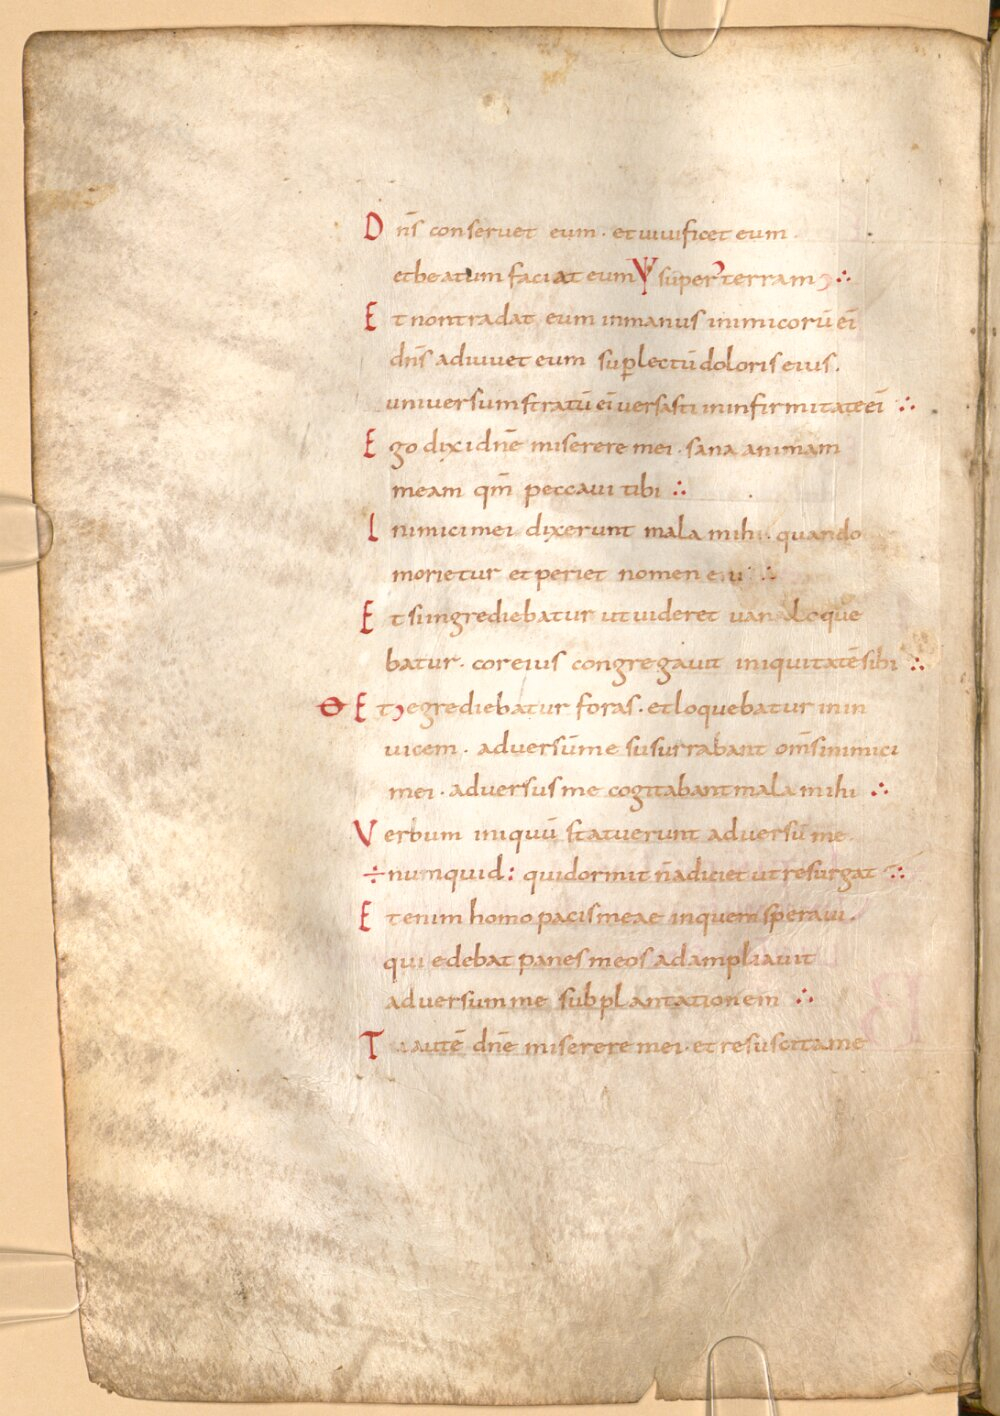 Dñs conservet eum · et vivificet eum ·
et beatum faciat eum super terram ∴
Et non tradat eum in manus inimicorū eī
dñs adiuvet eum sup lectū doloris eius.
universum stratū eī versasti in infirmitate eī ∴
Ego dixi dñe miserere mei · sana animam
meam qm̄ peccavi tibi ∴
Inimici mei dixerunt mala mihi · quando
morietur et periet nomen eiu ∴
Et si ingrediebatur ut videret vana loque
batur · cor eius congregavit iniquitatē sibi ∴
Et egrediebatur foras · et loquebatur in in
vicem · adversūme susurrabant om̄s inimici
mei · adversus me cogitabant mala mihi ∴
Verbum iniquū statuerunt adversū me ·
÷ numquid : qui dormit n̄ adiciet ut resurgat ∴
Etenim homo pacis meae in quem speravi .
qui edebat panes meos adampliavit
adversum me subplantationem ∴
Tu autē dñe miserere mei · et resuscita me